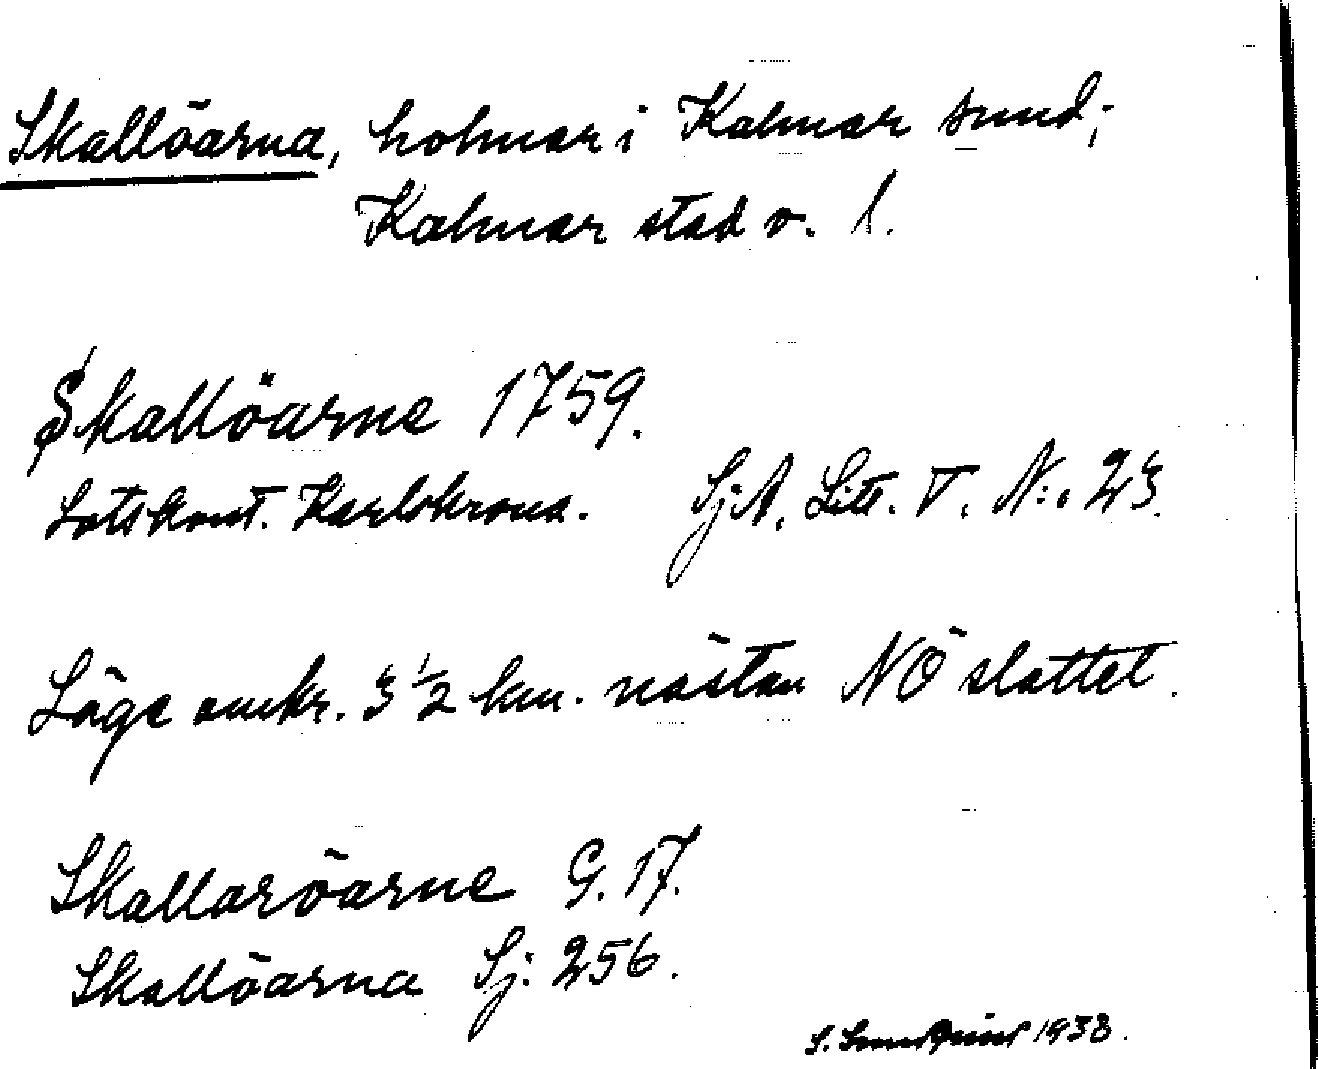 Skallöarna, holmar i Kalmar sund;
Kalmar stad o. l.
Skallöarne 1759.
Lotskont. Karlskrona. Sj.A. Litt. V. N:o 23.
Läge omkr. 3 1/2 km. nästan NÖ slottet.
Skallaröarne G. 17.
Skallöarna Sj: 256.
S. 1938.